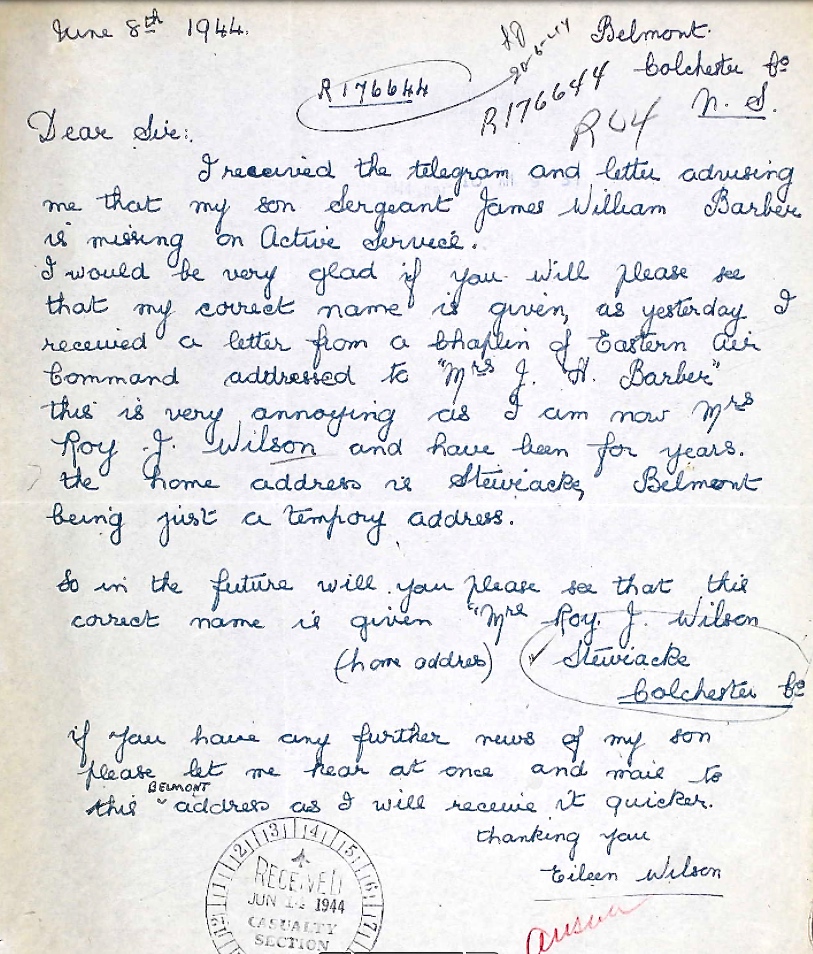 June 8th 1944.
Belmont.
Colchester Co
N. S.
R176644
R176644
R64
Dear Sir:.
I received the telegram and letter advising
me that my son Sergeant James William Barber
is missing on Active Service.
I would be very glad if you will please see
that my correct name is given, as yesterday I
received a letter from a Chaplin of Eastern Air
Command addressed to "Mrs J. H. Barber"
this is very annoying as I am now Mrs
Roy J. Wilson and have been for years.
the home address is Stewiacke, Belmont
being just a tempory address.
So in the future will you please see that this
correct name is given "Mrs Roy. J. Wilson
(home addres) Stewiacke
Colchester Co
if you have any further news of my son
please let me hear at once and mail to
BELMONT
this address as I will receive it quicker.
thanking you
Eileen Wilson
RECEIVED
JUN 1944
CASUALTY
SECTION